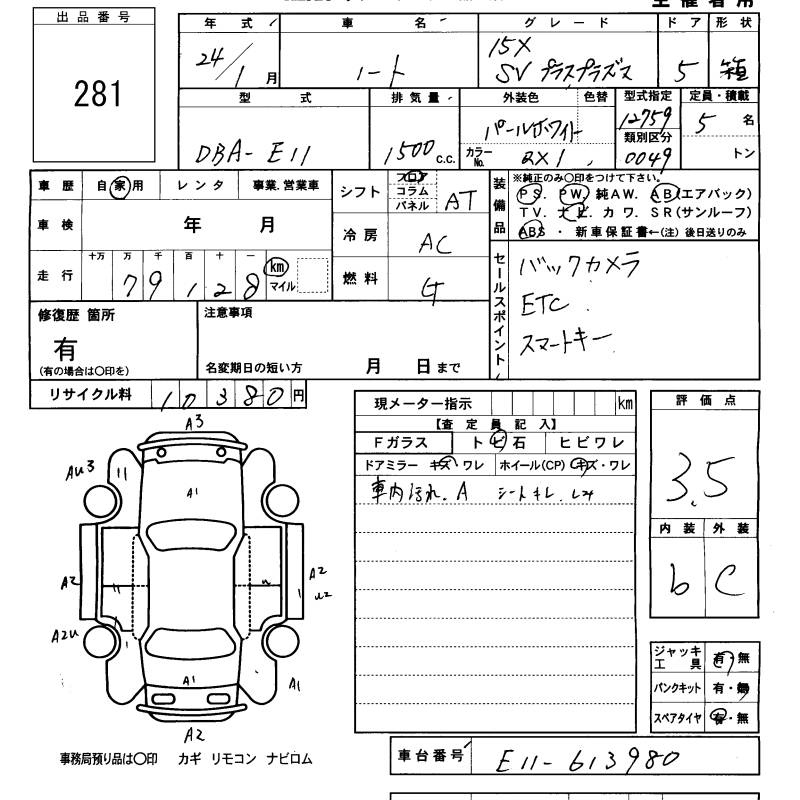 出品番号 年式 車名 グレード ドア 形状
281 24/1月 ノート 15X SV プラスプラズマ 5 箱
型式 排気量 外装色 色替 型式指定 定員・積載
DBA-E11 1500 c.c. パールホワイト 12759 5 名
カラーNo. QX1 類別区分 0049 トン
車歴 自家用 レンタ 事業.営業車 シフト フロア コラム パネル AT
装備品 ※純正のみ〇印をつけて下さい。
PS. PW. 純AW. AB(エアバック)
TV. ナビ. カワ. SR(サンルーフ)
ABS ・ 新車保証書←(注) 後日送りのみ
車検 年 月 冷房 AC
走行 十万 万 千 百 十 一 km マイル 燃料 G
79,128
セールスポイント バックカメラ
ETC
スマートキー
修復歴 箇所 注意事項
有
(有の場合は〇印を) 名変期日の短い方 月 日まで
リサイクル料 10380円
現メーター指示 km 評価点
【査定員記入】 3.5
Fガラス トビ石 ヒビワレ
ドアミラー キズ・ワレ ホイール(CP) キズ・ワレ
車内汚れ.A シートキレ.
内装 外装
b C
A3
AU3
A1
A2 A2
U2
A2U
A1 A1
A2
ジャッキ工具 有・無
パンクキット 有・無
スペアタイヤ 有・無
事務局預り品は〇印 カギ リモコン ナビロム
車台番号 E11-613980